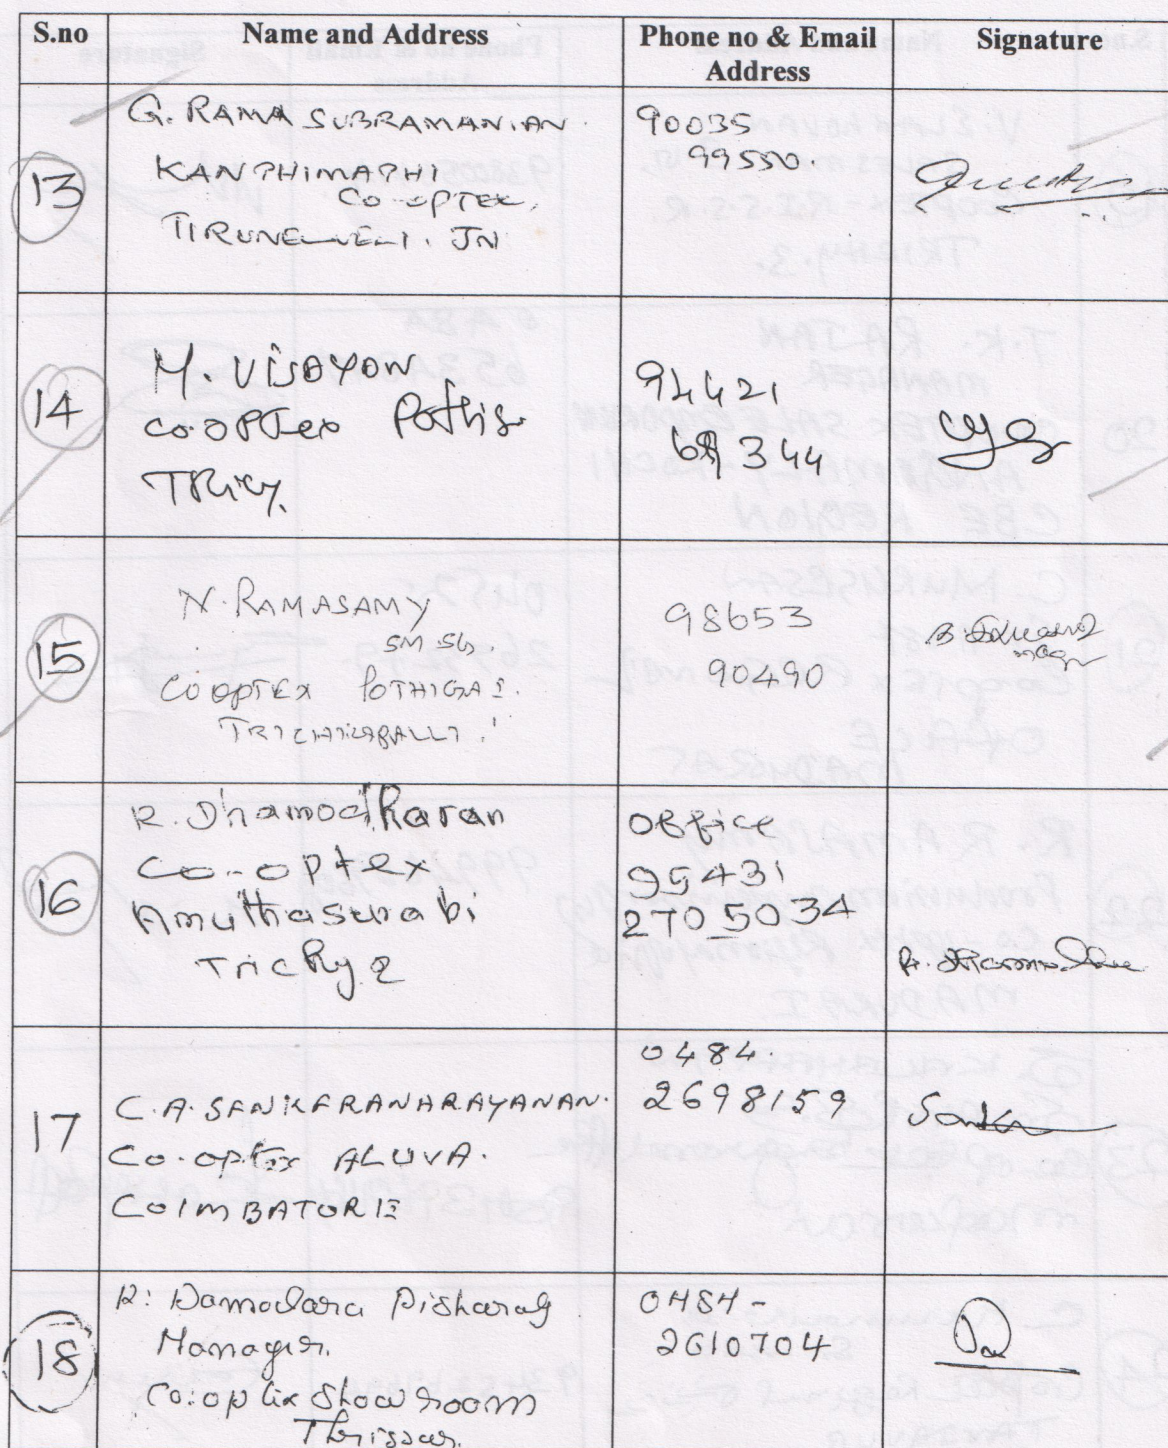 S.no Name and Address Phone no & Email Address Signature
13
G. RAMA SUBRAMANIAN.
KANTHIMATHI
CO-OPTEX,
TIRUNELVELI. JN
90035
99550.
14
M. VIJAYAN
CO-OPTEX Pothis
TRICY.
94421
344
15
N. RAMASAMY
SM.
COOPTEX POTHIGAI.
98653
90490
16
R. Dhamodharan
Co-optex
Amuthasurabi
Trichy 2
Office
95431
270 5034
R.
17
C.A. SANKARANARAYANAN.
Co-optex ALUVA.
COIMBATORE
0484.
2698159
18
R: Damodara Pisharady
Manager.
Co:optex Show room
Thrissur.
0484-
2610704